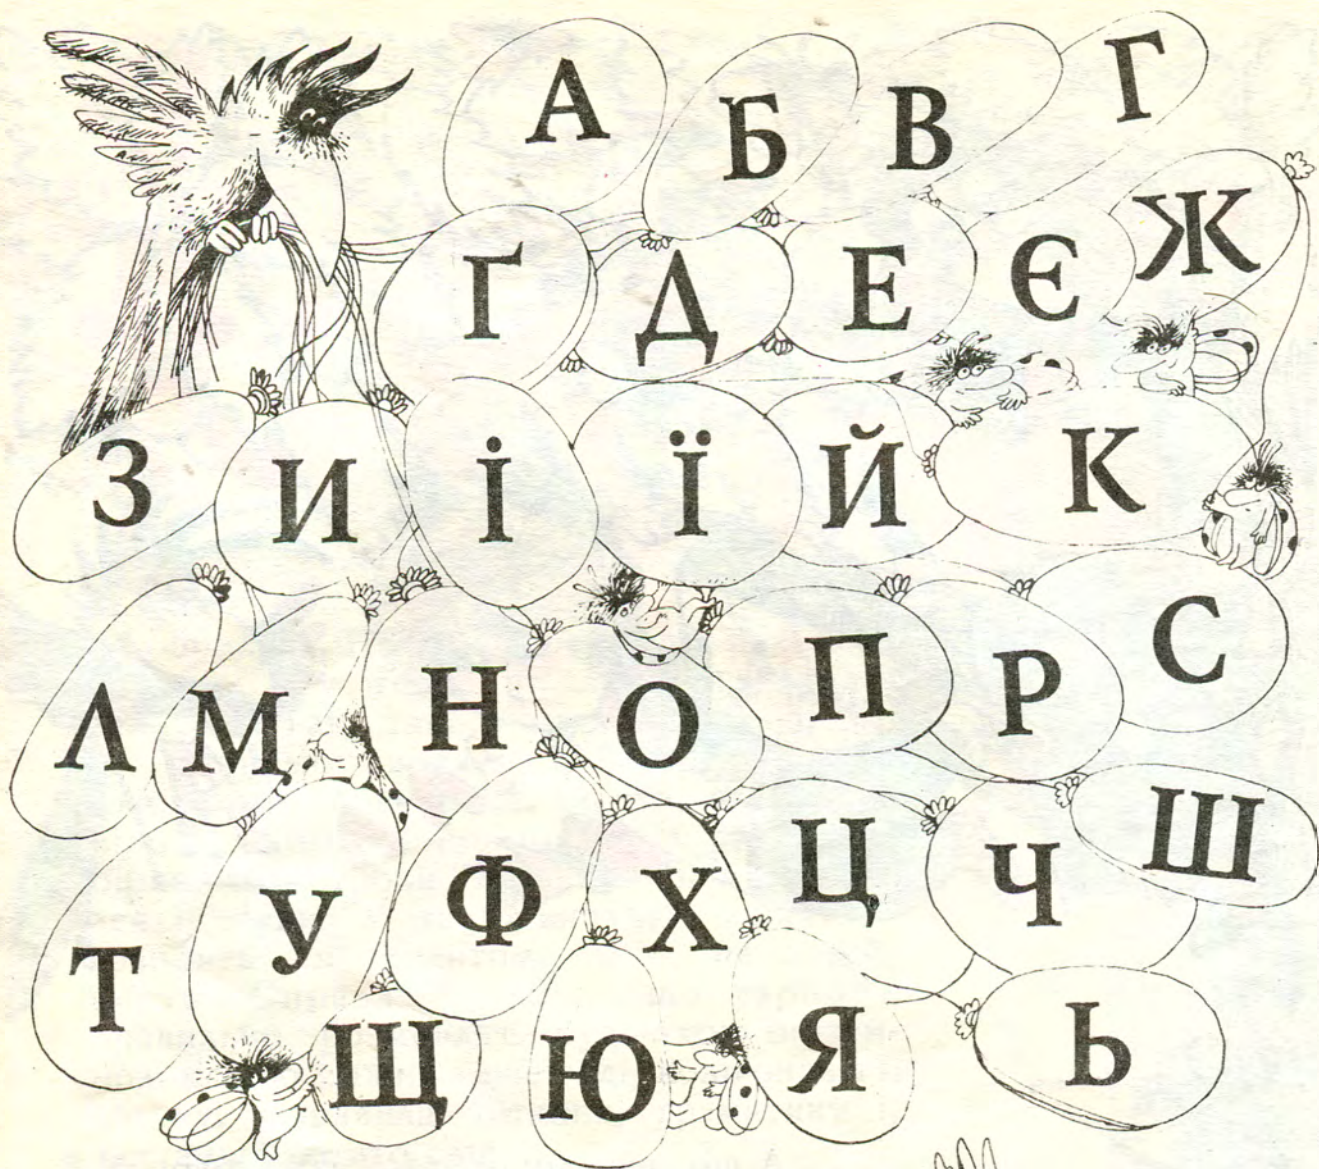 А Б В Г
Ґ Д Е Є Ж
З И І Ї Й К
Л М Н О П Р С
Т У Ф Х Ц Ч Ш
Щ Ю Я Ь